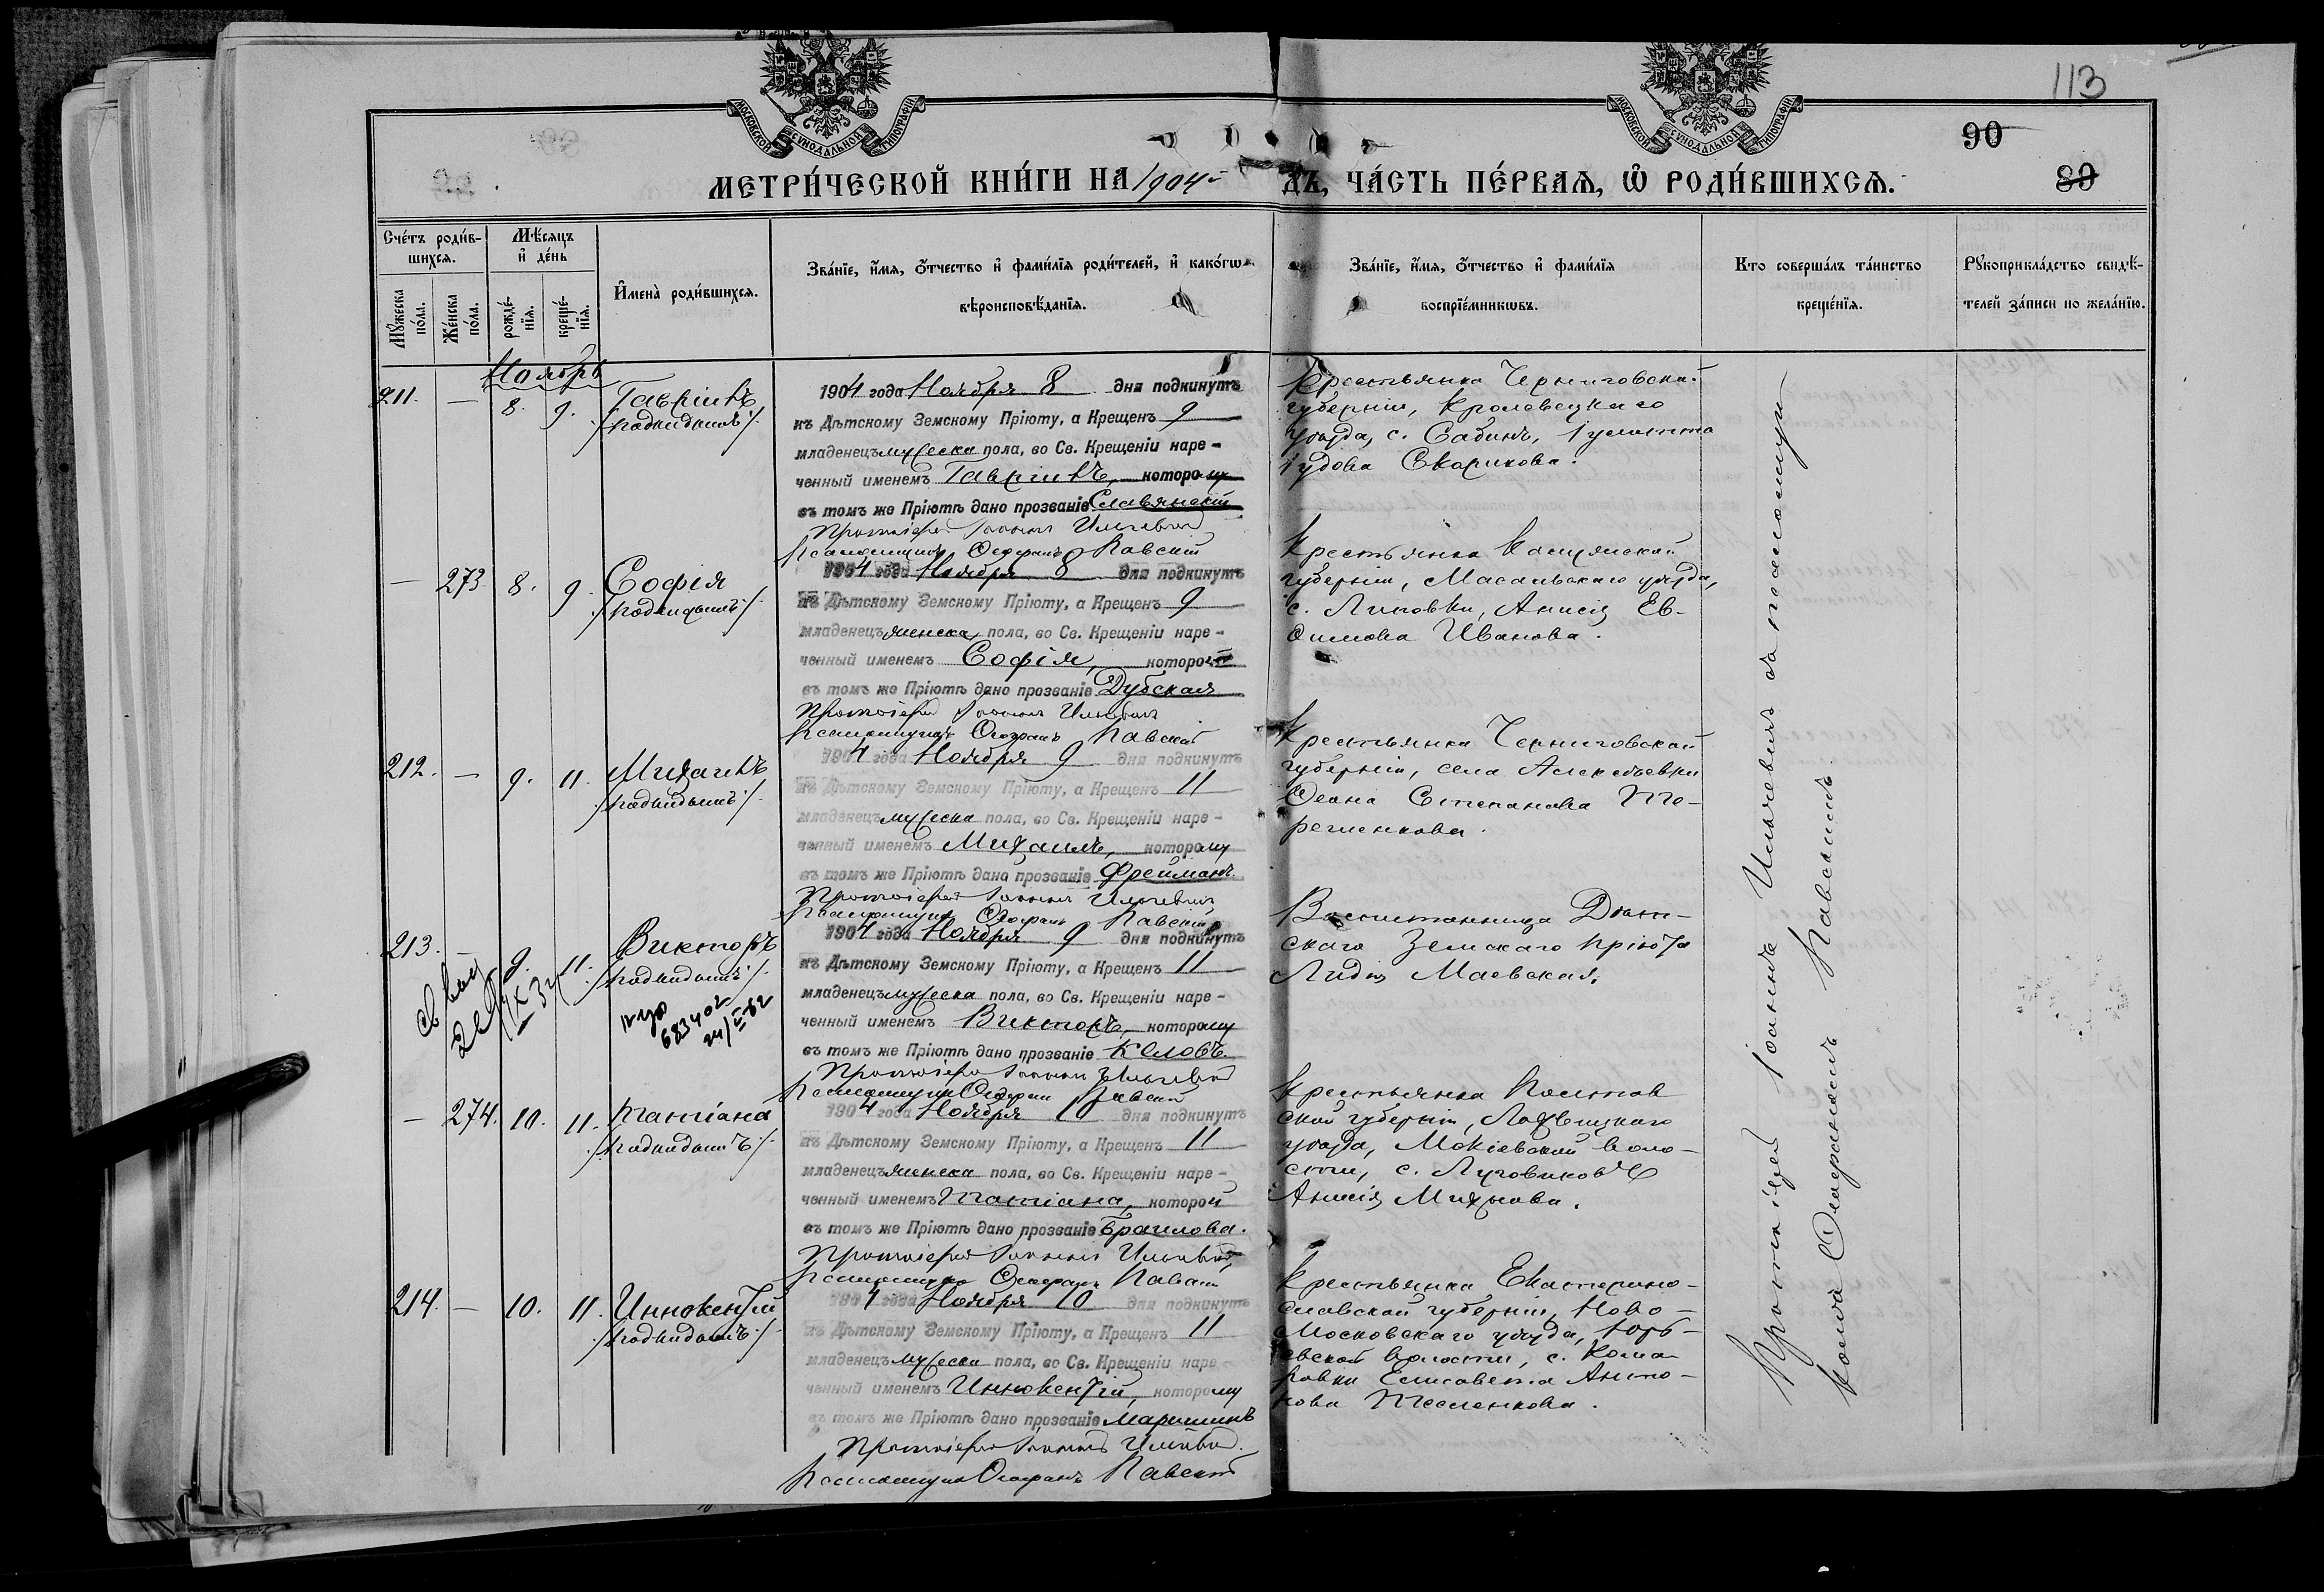 МОСКОВСКОЙ СѴНОДАЛЬНОЙ ТИПОГРАФІИ
МОСКОВСКОЙ СѴНОДАЛЬНОЙ ТИПОГРАФІИ
113
90
89
МЕТРИ́ЧЕСКОЙ КНИ́ГИ НА 1904 ДЪ, ЧА́СТЬ ПЕ́РВАЯ, Ѡ҆ РОДИ́ВШИХСЯ.
Сче́тъ роди́в-
шихся.
Мѣ́сяцъ
и҆ де́нь
Мꙋ́жеска
по́ла.
Же́нска
по́ла.
рожде́-
нїя.
креще́-
нїя.
И҆мена̀ роди́вшихся.
Зва́нїе, и҆́мя, ѻ҆́тчество и҆ фами́лїя роди́телей, и҆ како́гѡ
вѣроисповѣ́данїя.
Зва́нїе, и҆́мя, ѻ҆́тчество и҆ фами́лїя
воспрїе́мникѡвъ.
Кто соверша́лъ та́инство
креще́нїя.
Рꙋкоприкла́дство свидѣ́-
телей за́писи по жела́нїю.
Ноябрь
211. — 8. 9. Гавріилъ
/подкидышъ/.
1904 года Ноября 8 дня подкинутъ
къ Дѣтскому Земскому Пріюту, а Крещенъ 9
младенецъ мужеска пола, во Св. Крещеніи наре-
ченный именемъ Гавріилъ, которому
въ томъ же Пріютѣ дано прозваніе Славянскій
Протоіерей Іоаннъ Ильчевичъ
Псаломщикъ Ѳеофанъ Павскій
Крестьянка Черниговской
губерніи, Кролевецкаго
уѣзда, с. Іулитта
Іудова Скорикова.
— 273 8. 9. Софія
/подкидышъ/.
1904 года Ноября 8 дня подкинутъ
къ Дѣтскому Земскому Пріюту, а Крещенъ 9
младенецъ женска пола, во Св. Крещеніи наре-
ченный именемъ Софія, которой
въ томъ же Пріютѣ дано прозваніе Дубская
Протоіерей Іоаннъ Ильчевичъ
Псаломщикъ Ѳеофанъ Павскій
Крестьянка
губерніи, Масальскаго уѣзда,
с. Липовки, Анисія Ев-
ѳимова Иванова.
212. — 9. 11. Михаилъ
/подкидышъ/.
1904 года Ноября 9 дня подкинутъ
къ Дѣтскому Земскому Пріюту, а Крещенъ 11
младенецъ мужеска пола, во Св. Крещеніи наре-
ченный именемъ Михаилъ, которому
въ томъ же Пріютѣ дано прозваніе Фрейманъ.
Протоіерей Іоаннъ Ильчевичъ
Псаломщикъ Ѳеофанъ Павскій
Крестьянка Черниговской
губерніи, села Алексѣевки
Степанова Те-
рещенкова.
213. — 9. 11. Викторъ
/подкидышъ/.
1904 года Ноября 9 дня подкинутъ
къ Дѣтскому Земскому Пріюту, а Крещенъ 11
младенецъ мужеска пола, во Св. Крещеніи наре-
ченный именемъ Викторъ, которому
въ томъ же Пріютѣ дано прозваніе
Протоіерей Іоаннъ Ильчевичъ
Псаломщикъ Ѳеофанъ Павскій
Воспитанница Дѣт-
скаго Земскаго Пріюта
Лидія Маевская.
— 274. 10. 11. Татіана
/подкидышъ/
1904 года Ноября 10 дня подкинутъ
къ Дѣтскому Земскому Пріюту, а Крещенъ 11
младенецъ женска пола, во Св. Крещеніи наре-
ченный именемъ Татіана, которой
въ томъ же Пріютѣ дано прозваніе Браилова.
Протоіерей Іоаннъ Ильчевичъ
Псаломщикъ Ѳеофанъ Павскій
Крестьянка Полтав
ской губерніи, Лохвицкаго
уѣзда, Мокіевской воло-
сти, с.
Анисія Михнова.
214. — 10. 11. Иннокентій
/подкидышъ/
1904 года Ноября 10 дня подкинутъ
къ Дѣтскому Земскому Пріюту, а Крещенъ 11
младенецъ мужеска пола, во Св. Крещеніи наре-
ченный именемъ Иннокентій, которому
въ томъ же Пріютѣ дано прозваніе Маришинъ
Протоіерей Іоаннъ Ильчевичъ.
Псаломщикъ Ѳеофанъ Павскій
Крестьянка Екатерино-
славской губерніи, Ново-
Московскаго уѣзда, Юрь-
евской волости, с. Кома-
ровки Елисавета Анто-
нова Тесленкова.
Протоіерей Іоаннъ Ильчевичъ съ псаломщи-
комъ Ѳеофаномъ Павскимъ.